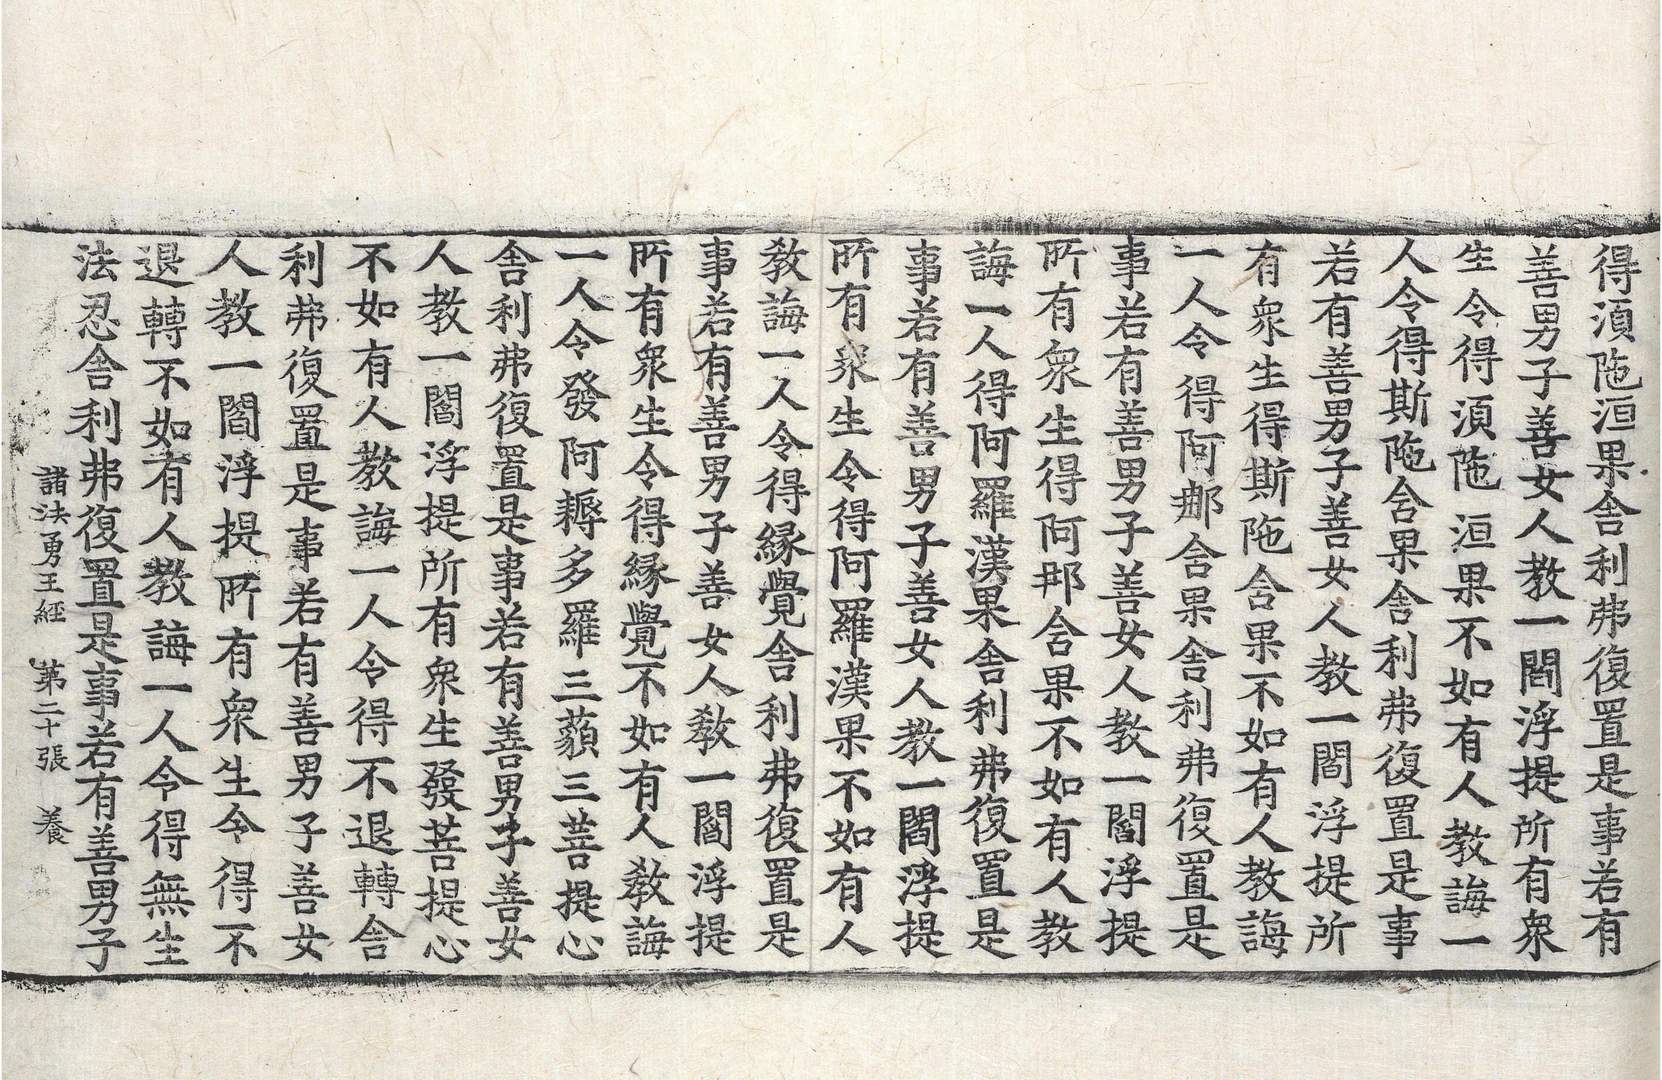 得湏陁洹果舍利弗復置是事若有
善男子善女人教一閻浮提所有衆
生令得湏陁洹果不如有人教誨一
人令得斯陁舍果舍利弗復置是事
若有善男子善女人教一閻浮提所
有衆生得斯陁含果不如有人教誨
一人令得阿𨙻舍果舍利弗復置是
事若有善男子善女人教一閻浮提
所有衆生得阿那含果不如有人教
誨一人得阿羅漢果舍利弗復置是
事若有善男子善女人教一閻浮提
所有衆生令得阿羅漢果不如有人
教誨一人令得緣覺舍利弗復置是
事若有善男子善女人教一閻浮提
所有衆生令得緣覺不如有人教誨
一人令發阿耨多羅三藐三菩提心
舍利弗復置是事若有善男子善女
人教一閻浮提所有衆生發菩提心
不如有人教誨一人令得不退轉舍
利弗復置是事若有善男子善女
人教一閻浮提所有衆生令得不
退轉不如有人教誨一人令得無生
法忍舍利弗復置是事若有善男子
諸法勇王經 第二十張 養